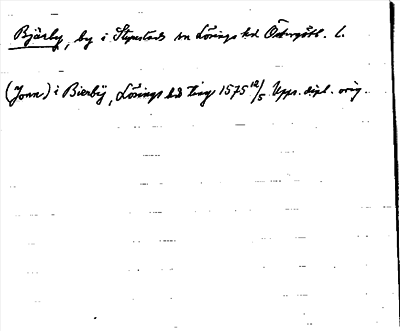 Bjärby, by i Styrestads sn Lösings hd Östergötl. l.
(Jonn) i Bierby, Lösings hd ting 1575 12/5 Upps. dipl. orig.